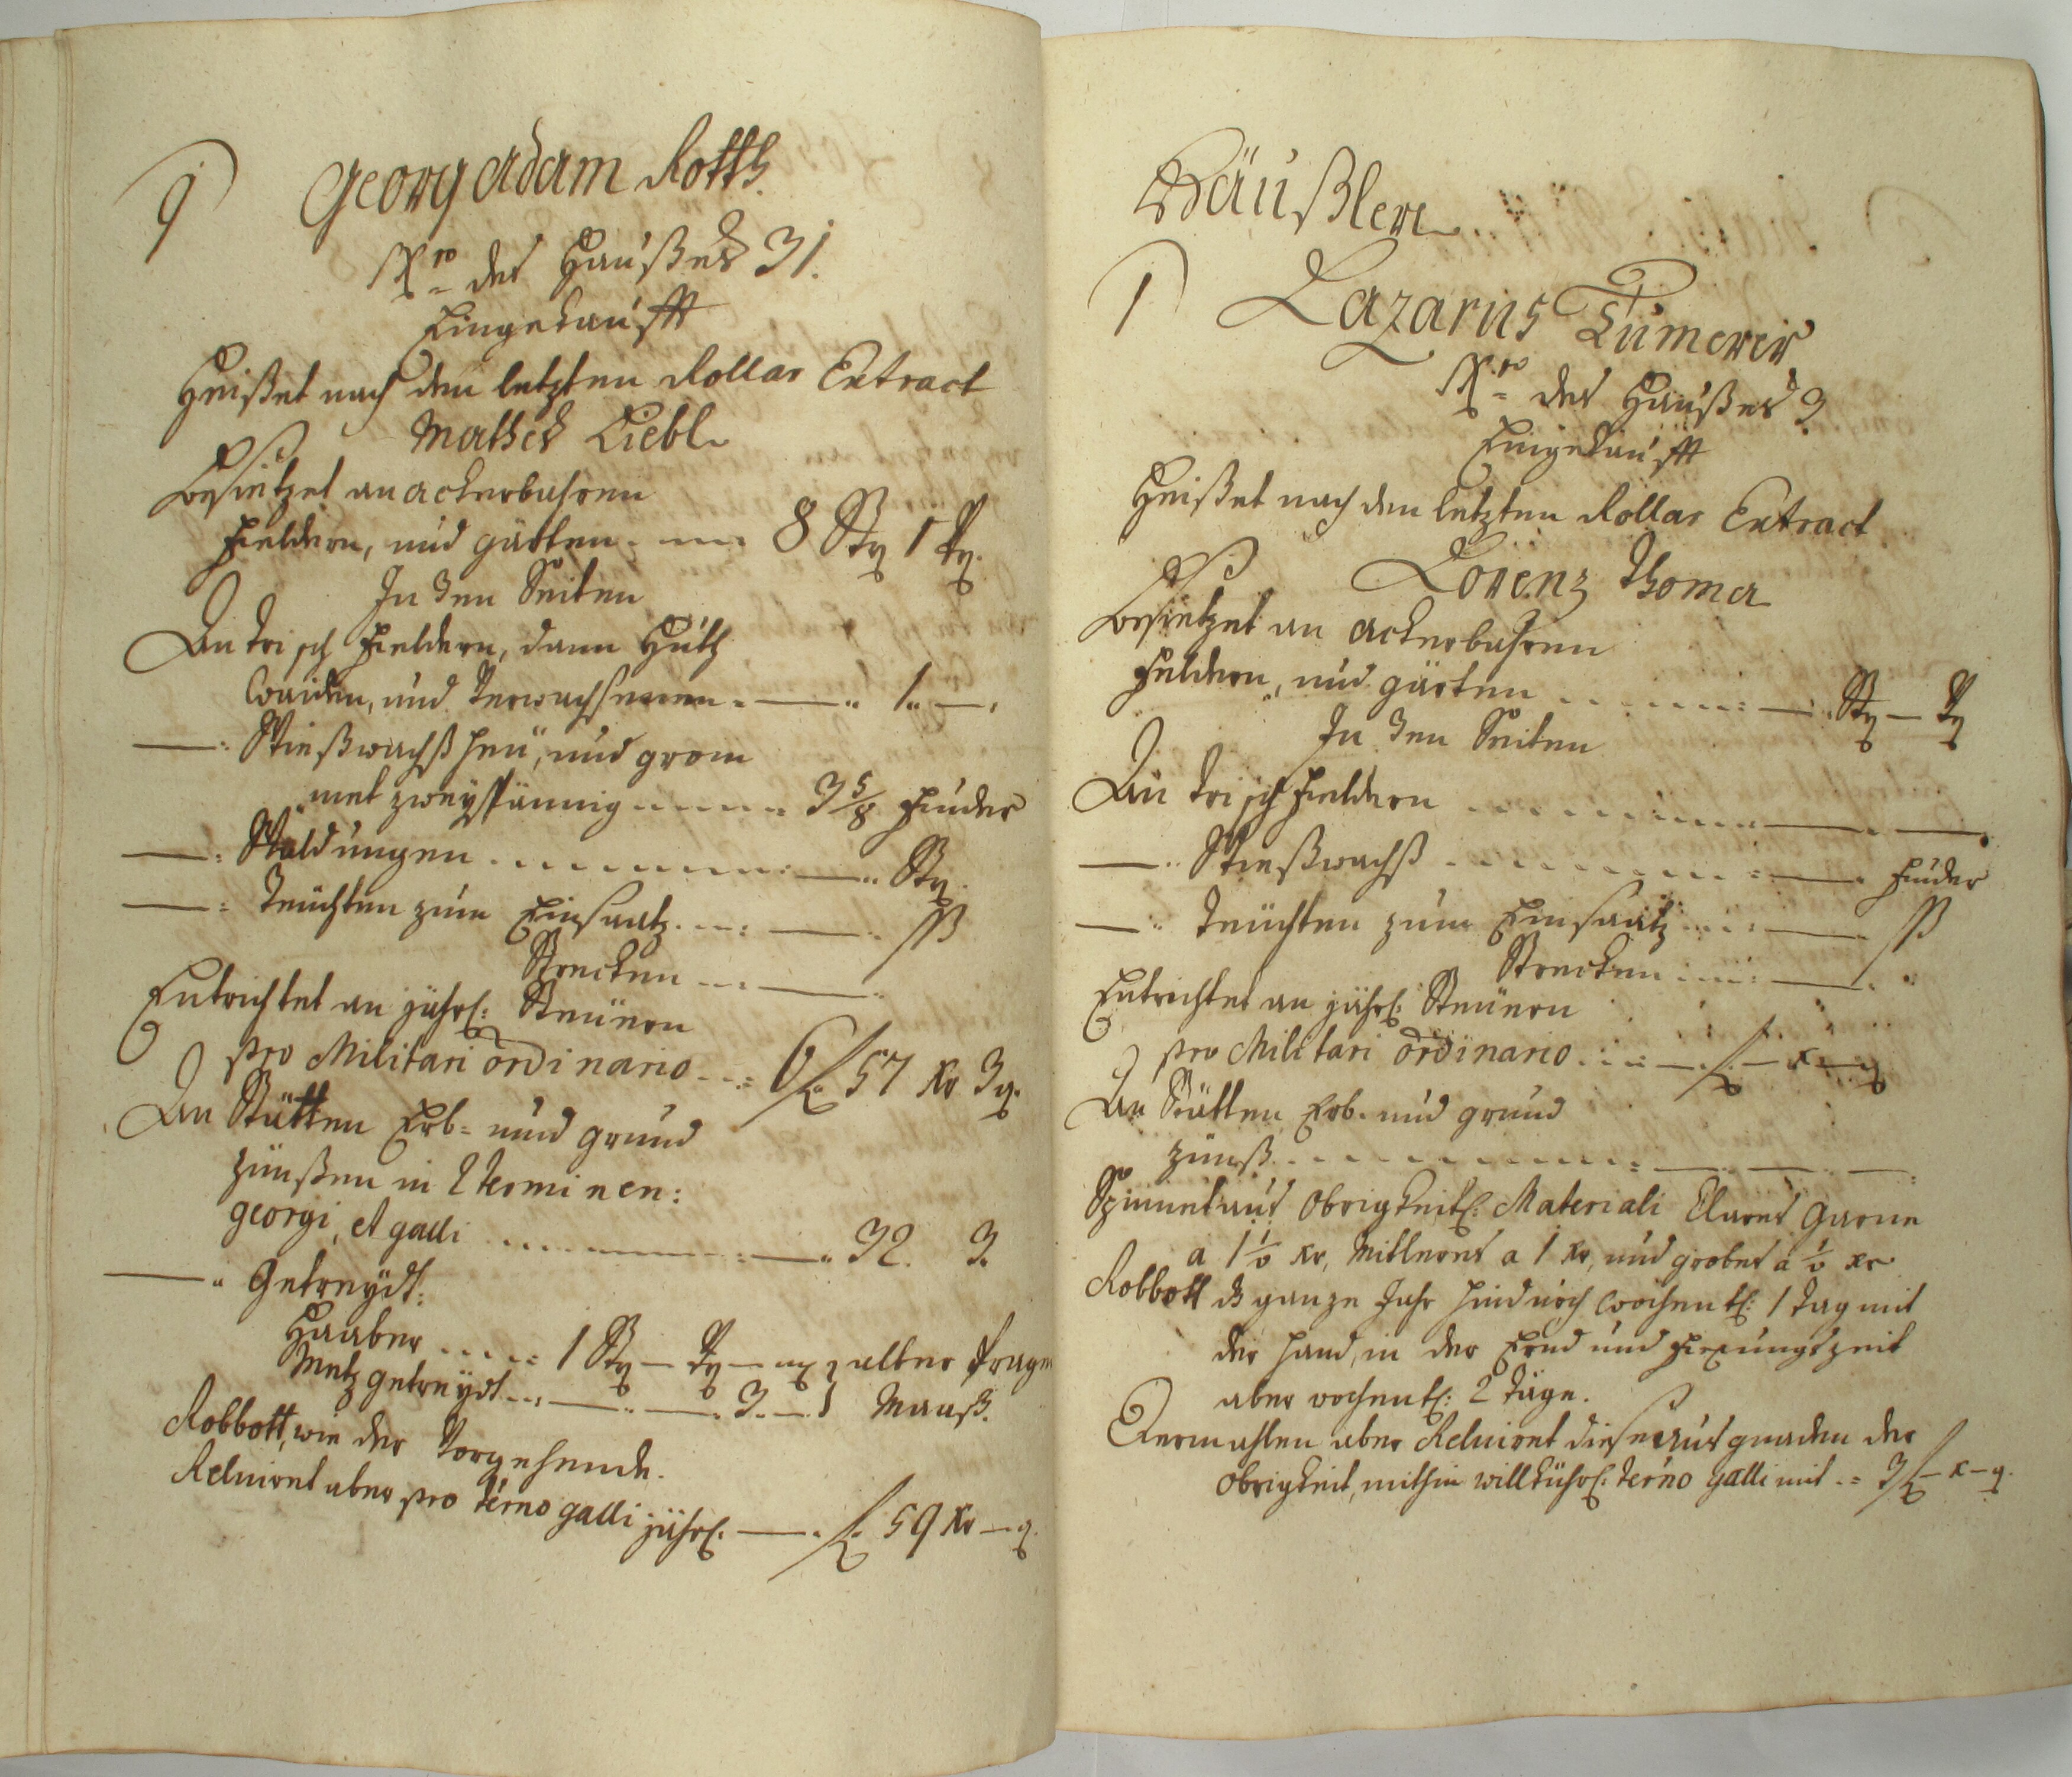 9) Georg Adam Rotth.
Nro. des Haußes 31.
Eingekaufft
Heißet nach dem letzten Rollar Extract
Mathes Liebl
Besietzet an ackerbahren
Fieldern, und gärtten 8 Str 1 Vr.
In den Seiten
An trisch Fieldern, dann Huth
Waiden, und verwachsenen 1.. —
—: Wießwachß heu, und grom
met zweyspännig 3 5/8 Fuder
—: Waldungen — Str.
—: Teüchten zum Einsaatz — ß
Strecken —
Entrichtet an jährl: Steüern
pro Militari ordinario 6 f. 57 kr 3 q.
An Stätten Erb- und grund
zünßen in 2 terminen:
georgi, et galli — 32. 3.
—" Getreydt:
Haaber 1 Str — Vr — alter Prager
Metz getreydt — — 3 — 1 Maaß.
Robbott, wie der Vorgehende.
Reluiret aber pro terno galli jährl. — f. 59 kr — q.
Häußlere
1) Lazarus Tümerer
Nro. des Haußes 3
Eingekaufft
Heißet nach den letzten Rollar Extract
Lorenz Thoma
Besietzet an ackerbahren
Feldern, und gärten — Str — Vr
In den Seiten
An trisch Fieldern — —
—" Wießwachß — Fuder
—" Teüchten zum Einsaatz — ß
Strecken —
Entrichtet an jährl: Steüern
pro Militari ordinario — f. — x — q
An Stätten Erb- und grund
zünß — — —
Spinnet aus Obrigkeitl: Materiali Clares Garne
a 1 1/2 kr, Mitleres a 1 kr, und grobes a 1/2 xr
Robbott ds ganze Jahr hindurch wochentl: 1 tag mit
der Hand, in der Ernd und Fexungszeit
aber wochentl: 2 täge.
Dermahlen aber Reluiret diese aus gnaden der
Obrigkeit, mithin willkührl: terno Galli mit 3 f — x — q.